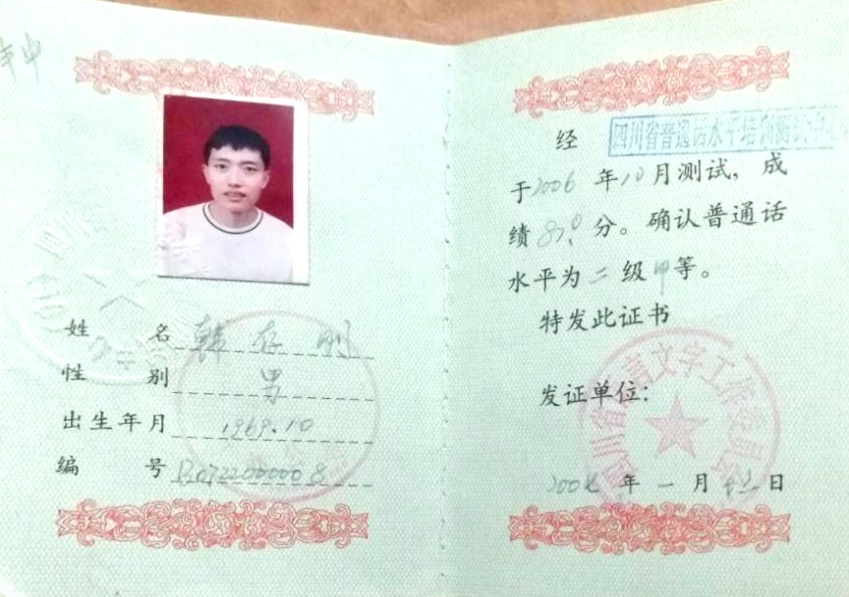 姓名 韩存刚
性别 男
出生年月 1969.10
编号 P.0722000008
经 四川省普通话水平培训测试中心
于2006年10月测试，成
绩 87.0 分。确认普通话
水平为二级甲等。
特发此证书
发证单位：
四川省语言文字工作委员会
年一月 日